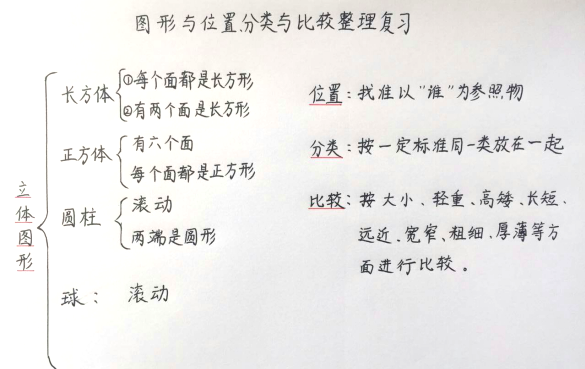 图形与位置、分类与比较整理复习
立体图形
长方体
①每个面都是长方形
②有两个面是长方形
正方体
有六个面
每个面都是正方形
圆柱
滚动
两端是圆形
球： 滚动
位置：找准以“谁”为参照物
分类：按一定标准同一类放在一起
比较：按大小、轻重、高矮、长短、
远近、宽窄、粗细、厚薄等方
面进行比较。